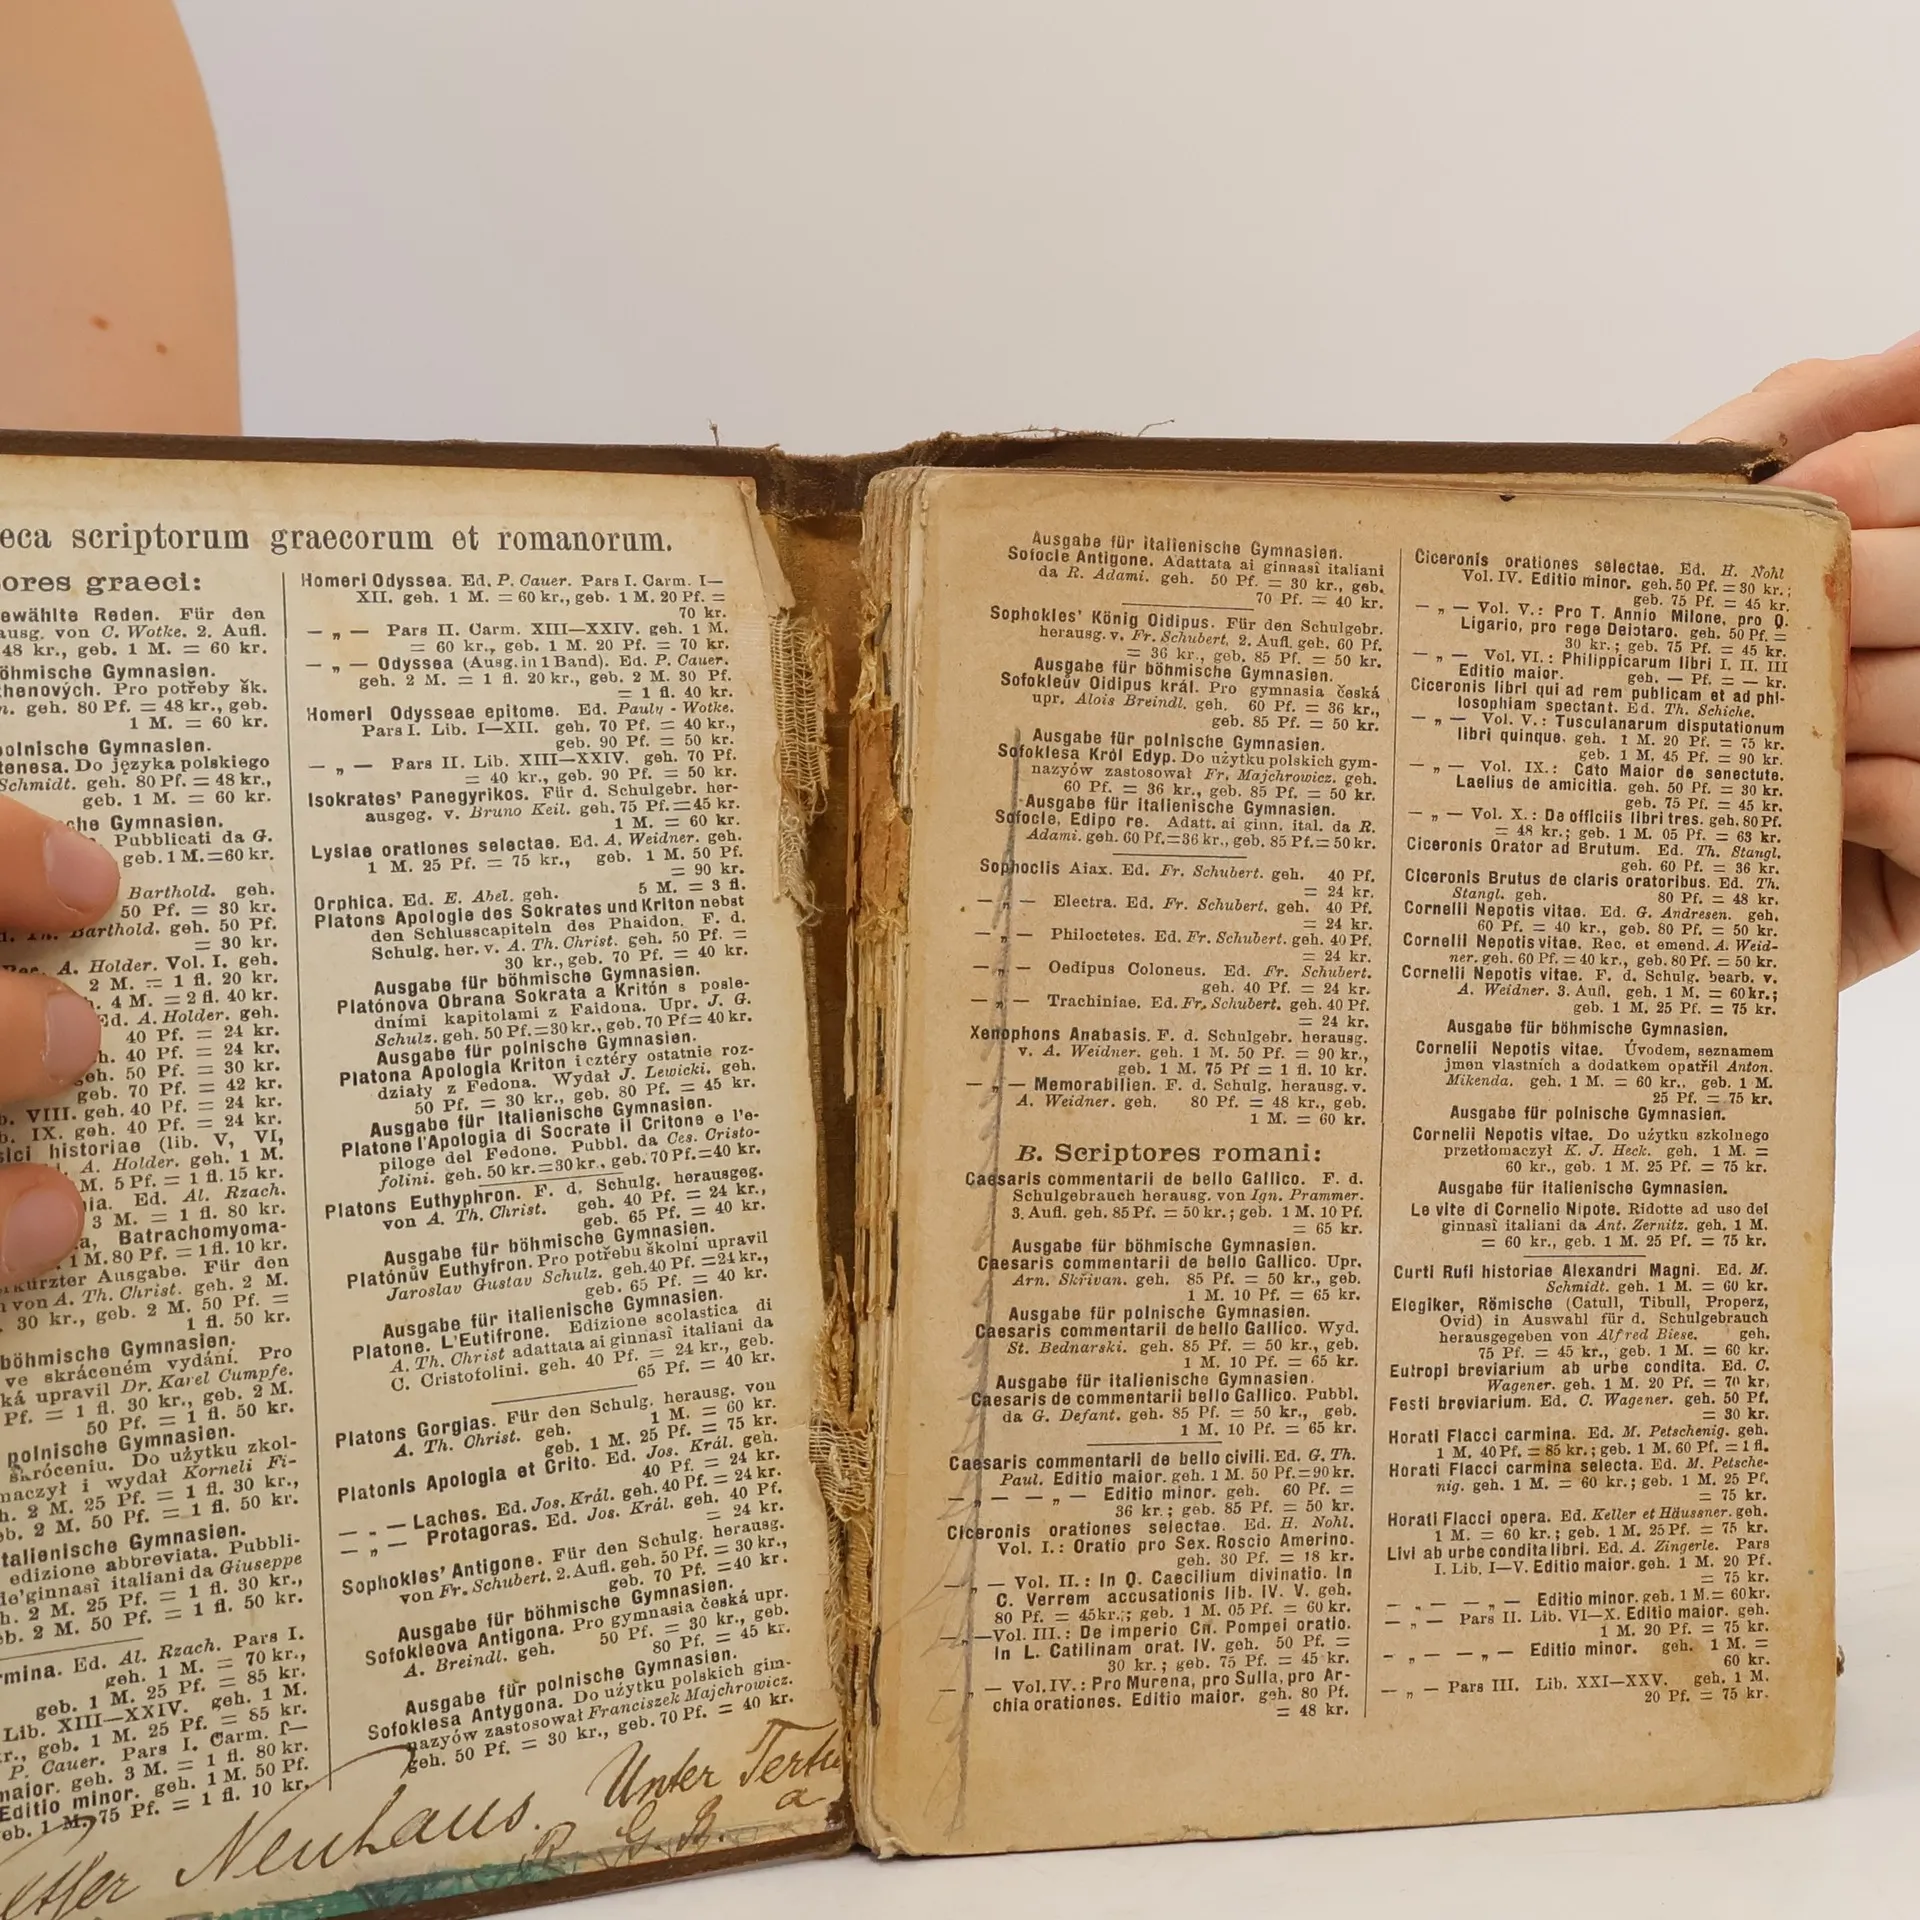 eca scriptorum graecorum et romanorum.
ores graeci:
ewählte Reden. Für den
ausg. von C. Wotke. 2. Aufl.
48 kr., geb. 1 M. = 60 kr.
öhmische Gymnasien.
thenových. Pro potřeby šk.
n. geh. 80 Pf. = 48 kr., geb.
1 M. = 60 kr.
polnische Gymnasien.
tenesa. Do języka polskiego
Schmidt. geh. 80 Pf. = 48 kr.,
geb. 1 M. = 60 kr.
che Gymnasien.
Pubblicati da G.
geb. 1 M. = 60 kr.
Barthold. geh.
50 Pf. = 30 kr.
Barthold. geh. 50 Pf.
= 30 kr.
A. Holder. Vol. I. geh.
2 M. = 1 fl. 20 kr.
4 M. = 2 fl. 40 kr.
Ed. A. Holder. geh.
40 Pf. = 24 kr.
h. 40 Pf. = 24 kr.
geh. 50 Pf. = 30 kr.
geb. 70 Pf. = 42 kr.
b. VIII. geh. 40 Pf. = 24 kr.
b. IX. geh. 40 Pf. = 24 kr.
sici historiae (lib. V, VI,
A. Holder. geh. 1 M.
M. 5 Pf. = 1 fl. 15 kr.
nia. Ed. Al. Rzach.
3 M. = 1 fl. 80 kr.
a, Batrachomyoma-
1 M. 80 Pf. = 1 fl. 10 kr.
rkürzter Ausgabe. Für den
von A. Th. Christ. geh. 2 M.
30 kr., geb. 2 M. 50 Pf. =
1 fl. 50 kr.
böhmische Gymnasien.
ve skráceném vydání. Pro
ká upravil Dr. Karel Cumpfe.
Pf. = 1 fl. 30 kr., geb. 2 M.
50 Pf. = 1 fl. 50 kr.
polnische Gymnasien.
skróceniu. Do użytku zkol-
maczył i wydał Korneli Fi-
h. 2 M. 25 Pf. = 1 fl. 30 kr.,
eb. 2 M. 50 Pf. = 1 fl. 50 kr.
talienische Gymnasien.
edizione abbreviata. Pubbli-
de'ginnasî italiani da Giuseppe
h. 2 M. 25 Pf. = 1 fl. 30 kr.,
eb. 2 M. 50 Pf. = 1 fl. 50 kr.
rmina. Ed. Al. Rzach. Pars I.
geh. 1 M. = 70 kr.,
geb. 1 M. 25 Pf. = 85 kr.
Lib. XIII—XXIV. geh. 1 M.
r., geb. 1 M. 25 Pf. = 85 kr.
P. Cauer. Pars I. Carm. I—
maior. geh. 3 M. = 1 fl. 80 kr.
Editio minor. geh. 1 M. 50 Pf.
eb. 1 M. 75 Pf. = 1 fl. 10 kr.
Homeri Odyssea. Ed. P. Cauer. Pars I. Carm. I—
XII. geh. 1 M. = 60 kr., geb. 1 M. 20 Pf. =
70 kr.
— „ — Pars II. Carm. XIII—XXIV. geh. 1 M.
= 60 kr., geb. 1 M. 20 Pf. = 70 kr.
— „ — Odyssea (Ausg. in 1 Band). Ed. P. Cauer.
geh. 2 M. = 1 fl. 20 kr., geb. 2 M. 30 Pf.
= 1 fl. 40 kr.
Homeri Odysseae epitome. Ed. Pauly - Wotke.
Pars I. Lib. I—XII. geh. 70 Pf. = 40 kr.,
geb. 90 Pf. = 50 kr.
— „ — Pars II. Lib. XIII—XXIV. geh. 70 Pf.
= 40 kr., geb. 90 Pf. = 50 kr.
Isokrates' Panegyrikos. Für d. Schulgebr. her-
ausgeg. v. Bruno Keil. geh. 75 Pf. = 45 kr.
1 M. = 60 kr.
Lysiae orationes selectae. Ed. A. Weidner. geh.
1 M. 25 Pf. = 75 kr., geb. 1 M. 50 Pf.
= 90 kr.
Orphica. Ed. E. Abel. geh. 5 M. = 3 fl.
Platons Apologie des Sokrates und Kriton nebst
den Schlusscapiteln des Phaidon. F. d.
Schulg. her. v. A. Th. Christ. geh. 50 Pf. =
30 kr., geb. 70 Pf. = 40 kr.
Ausgabe für böhmische Gymnasien.
Platónova Obrana Sokrata a Kritón s posle-
dními kapitolami z Faidona. Upr. J. G.
Schulz. geh. 50 Pf. = 30 kr., geb. 70 Pf = 40 kr.
Ausgabe für polnische Gymnasien.
Platona Apologia Kriton i cztéry ostatnie roz-
działy z Fedona. Wydał J. Lewicki. geh.
50 Pf. = 30 kr., geb. 80 Pf. = 45 kr.
Ausgabe für Italienische Gymnasien.
Platone l'Apologia di Socrate il Critone e l'e-
piloge del Fedone. Pubbl. da Ces. Cristo-
folini. geh. 50 kr. = 30 kr., geb. 70 Pf. = 40 kr.
Platons Euthyphron. F. d. Schulg. herausgeg.
von A. Th. Christ. geh. 40 Pf. = 24 kr.,
geb. 65 Pf. = 40 kr.
Ausgabe für böhmische Gymnasien.
Platónův Euthyfron. Pro potřebu školní upravil
Jaroslav Gustav Schulz. geh. 40 Pf. = 24 kr.,
geb. 65 Pf. = 40 kr.
Ausgabe für italienische Gymnasien.
Platone. L'Eutifrone. Edizione scolastica di
A. Th. Christ adattata ai ginnasî italiani da
C. Cristofolini. geh. 40 Pf. = 24 kr., geb.
65 Pf. = 40 kr.
Platons Gorgias. Für den Schulg. herausg. von
A. Th. Christ. geh. 1 M. = 60 kr.
geb. 1 M. 25 Pf. = 75 kr.
Platonis Apologia et Crito. Ed. Jos. Král. geh.
40 Pf. = 24 kr.
— „ — Laches. Ed. Jos. Král. geh. 40 Pf. = 24 kr.
— „ — Protagoras. Ed. Jos. Král. geh. 40 Pf.
= 24 kr.
Sophokles' Antigone. Für den Schulg. herausg.
von Fr. Schubert. 2. Aufl. geh. 50 Pf. = 30 kr.,
geb. 70 Pf. = 40 kr.
Ausgabe für böhmische Gymnasien.
Sofokleova Antigona. Pro gymnasia česká upr.
A. Breindl. geh. 50 Pf. = 30 kr., geb.
80 Pf. = 45 kr.
Ausgabe für polnische Gymnasien.
Sofoklesa Antygona. Do użytku polskich gim-
nazyów zastosował Franciszek Majchrowicz.
geh. 50 Pf. = 30 kr., geb. 70 Pf. = 40 kr.
Neuhaus. Unter Tertia
a
R. G. B.
Ausgabe für italienische Gymnasien.
Sofocle Antigone. Adattata ai ginnasî italiani
da R. Adami. geh. 50 Pf. = 30 kr., geb.
70 Pf. = 40 kr.
Sophokles' König Oidipus. Für den Schulgebr.
herausg. v. Fr. Schubert. 2. Aufl. geh. 60 Pf.
= 36 kr., geb. 85 Pf. = 50 kr.
Ausgabe für böhmische Gymnasien.
Sofokleův Oidipus král. Pro gymnasia česká
upr. Alois Breindl. geh. 60 Pf = 36 kr.,
geb. 85 Pf. = 50 kr.
Ausgabe für polnische Gymnasien.
Sofoklesa Król Edyp. Do użytku polskich gym-
nazyów zastosował Fr. Majchrowicz. geh.
60 Pf. = 36 kr., geb. 85 Pf. = 50 kr.
Ausgabe für italienische Gymnasien.
Sofocle, Edipo re. Adatt. ai ginn. ital. da R.
Adami. geh. 60 Pf. = 36 kr., geb. 85 Pf. = 50 kr.
Sophoclis Aiax. Ed. Fr. Schubert. geh. 40 Pf.
= 24 kr.
— „ — Electra. Ed. Fr. Schubert. geh. 40 Pf.
= 24 kr.
— „ — Philoctetes. Ed. Fr. Schubert. geh. 40 Pf.
= 24 kr.
— „ — Oedipus Coloneus. Ed. Fr. Schubert.
geh. 40 Pf. = 24 kr.
— „ — Trachiniae. Ed. Fr. Schubert. geh. 40 Pf.
= 24 kr.
Xenophons Anabasis. F. d. Schulgebr. herausg.
v. A. Weidner. geh. 1 M. 50 Pf. = 90 kr.,
geb. 1 M. 75 Pf = 1 fl. 10 kr.
— „ — Memorabilien. F. d. Schulg. herausg. v.
A. Weidner. geh. 80 Pf. = 48 kr., geb.
1 M. = 60 kr.
B. Scriptores romani:
Caesaris commentarii de bello Gallico. F. d.
Schulgebrauch herausg. von Ign. Prammer.
3. Aufl. geh. 85 Pf. = 50 kr.; geb. 1 M. 10 Pf.
= 65 kr.
Ausgabe für böhmische Gymnasien.
Caesaris commentarii de bello Gallico. Upr.
Arn. Skřivan. geh. 85 Pf. = 50 kr., geb.
1 M. 10 Pf. = 65 kr.
Ausgabe für polnische Gymnasien.
Caesaris commentarii de bello Gallico. Wyd.
St. Bednarski. geh. 85 Pf. = 50 kr., geb.
1 M. 10 Pf. = 65 kr.
Ausgabe für italienische Gymnasien.
Caesaris de commentarii bello Gallico. Pubbl.
da G. Defant. geh. 85 Pf. = 50 kr., geb.
1 M. 10 Pf. = 65 kr.
Caesaris commentarii de bello civili. Ed. G. Th.
Paul. Editio maior. geh. 1 M. 50 Pf. = 90 kr.
— „ — — „ — Editio minor. geh. 60 Pf. =
36 kr.; geb. 85 Pf. = 50 kr.
Ciceronis orationes selectae. Ed. H. Nohl.
Vol. I.: Oratio pro Sex. Roscio Amerino.
geh. 30 Pf. = 18 kr.
— „ — Vol. II.: In Q. Caecilium divinatio. In
C. Verrem accusationis lib. IV. V. geh.
80 Pf. = 45 kr.; geb. 1 M. 05 Pf. = 60 kr.
— „ — Vol. III.: De imperio Cn. Pompei oratio.
In L. Catilinam orat. IV. geh. 50 Pf. =
30 kr.; geb. 75 Pf. = 45 kr.
— „ — Vol. IV.: Pro Murena, pro Sulla, pro Ar-
chia orationes. Editio maior. geh. 80 Pf.
= 48 kr.
Ciceronis orationes selectae. Ed. H. Nohl
Vol. IV. Editio minor. geh. 50 Pf. = 30 kr.;
geb. 75 Pf. = 45 kr.
— „ — Vol. V.: Pro T. Annio Milone, pro Q.
Ligario, pro rege Deiotaro. geh. 50 Pf. =
30 kr.; geb. 75 Pf. = 45 kr.
— „ — Vol. VI.: Philippicarum libri I. II. III
Editio maior. geh. — Pf. = — kr.
Ciceronis libri qui ad rem publicam et ad phi-
losophiam spectant. Ed. Th. Schiche.
— „ — Vol. V.: Tusculanarum disputationum
libri quinque. geh. 1 M. 20 Pf. = 75 kr.
geb. 1 M. 45 Pf. = 90 kr.
— „ — Vol. IX.: Cato Maior de senectute.
Laelius de amicitia. geh. 50 Pf. = 30 kr.
geb. 75 Pf. = 45 kr.
— „ — Vol. X.: De officiis libri tres. geh. 80 Pf.
= 48 kr.; geb. 1 M. 05 Pf. = 63 kr.
Ciceronis Orator ad Brutum. Ed. Th. Stangl.
geh. 60 Pf. = 36 kr.
Ciceronis Brutus de claris oratoribus. Ed. Th.
Stangl. geh. 80 Pf. = 48 kr.
Cornelii Nepotis vitae. Ed. G. Andresen. geh.
60 Pf. = 40 kr., geb. 80 Pf. = 50 kr.
Cornelii Nepotis vitae. Rec. et emend. A. Weid-
ner. geh. 60 Pf. = 40 kr., geb. 80 Pf. = 50 kr.
Cornelii Nepotis vitae. F. d. Schulg. bearb. v.
A. Weidner. 3. Aufl. geh. 1 M. = 60 kr.;
geb. 1 M. 25 Pf. = 75 kr.
Ausgabe für böhmische Gymnasien.
Cornelii Nepotis vitae. Úvodem, seznamem
jmen vlastních a dodatkem opatřil Anton.
Mikenda. geh. 1 M. = 60 kr.. geb. 1 M.
25 Pf. = 75 kr.
Ausgabe für polnische Gymnasien.
Cornelii Nepotis vitae. Do użytku szkolnego
przetłomaczył K. J. Heck. geh. 1 M. =
60 kr., geb. 1 M. 25 Pf. = 75 kr.
Ausgabe für italienische Gymnasien.
Le vite di Cornelio Nipote. Ridotte ad uso dei
ginnasî italiani da Ant. Zernitz. geh. 1 M.
= 60 kr., geb. 1 M. 25 Pf. = 75 kr.
Curti Rufi historiae Alexandri Magni. Ed. M.
Schmidt. geh. 1 M. = 60 kr.
Elegiker, Römische (Catull, Tibull, Properz,
Ovid) in Auswahl für d. Schulgebrauch
herausgegeben von Alfred Biese. geh.
75 Pf. = 45 kr., geb. 1 M. = 60 kr.
Eutropi breviarium ab urbe condita. Ed. C.
Wagener. geh. 1 M. 20 Pf. = 70 kr,
Festi breviarium. Ed. C. Wagener. geh. 50 Pf.
= 30 kr.
Horati Flacci carmina. Ed. M. Petschenig. geh.
1 M. 40 Pf. = 85 kr.; geb. 1 M. 60 Pf. = 1 fl.
Horati Flacci carmina selecta. Ed. M. Petsche-
nig. geh. 1 M. = 60 kr.; geb. 1 M. 25 Pf.
= 75 kr.
Horati Flacci opera. Ed. Keller et Häussner. geh.
1 M. = 60 kr.; geb. 1 M. 25 Pf. = 75 kr.
Livi ab urbe condita libri. Ed. A. Zingerle. Pars
I. Lib. I—V. Editio maior. geh. 1 M. 20 Pf.
= 75 kr.
— „ — — „ — Editio minor. geb. 1 M. = 60 kr.
— „ — Pars II. Lib. VI—X. Editio maior. geh.
1 M. 20 Pf. = 75 kr.
— „ — — „ — Editio minor. geh. 1 M. =
60 kr.
— „ — Pars III. Lib. XXI—XXV. geh. 1 M.
20 Pf. = 75 kr.